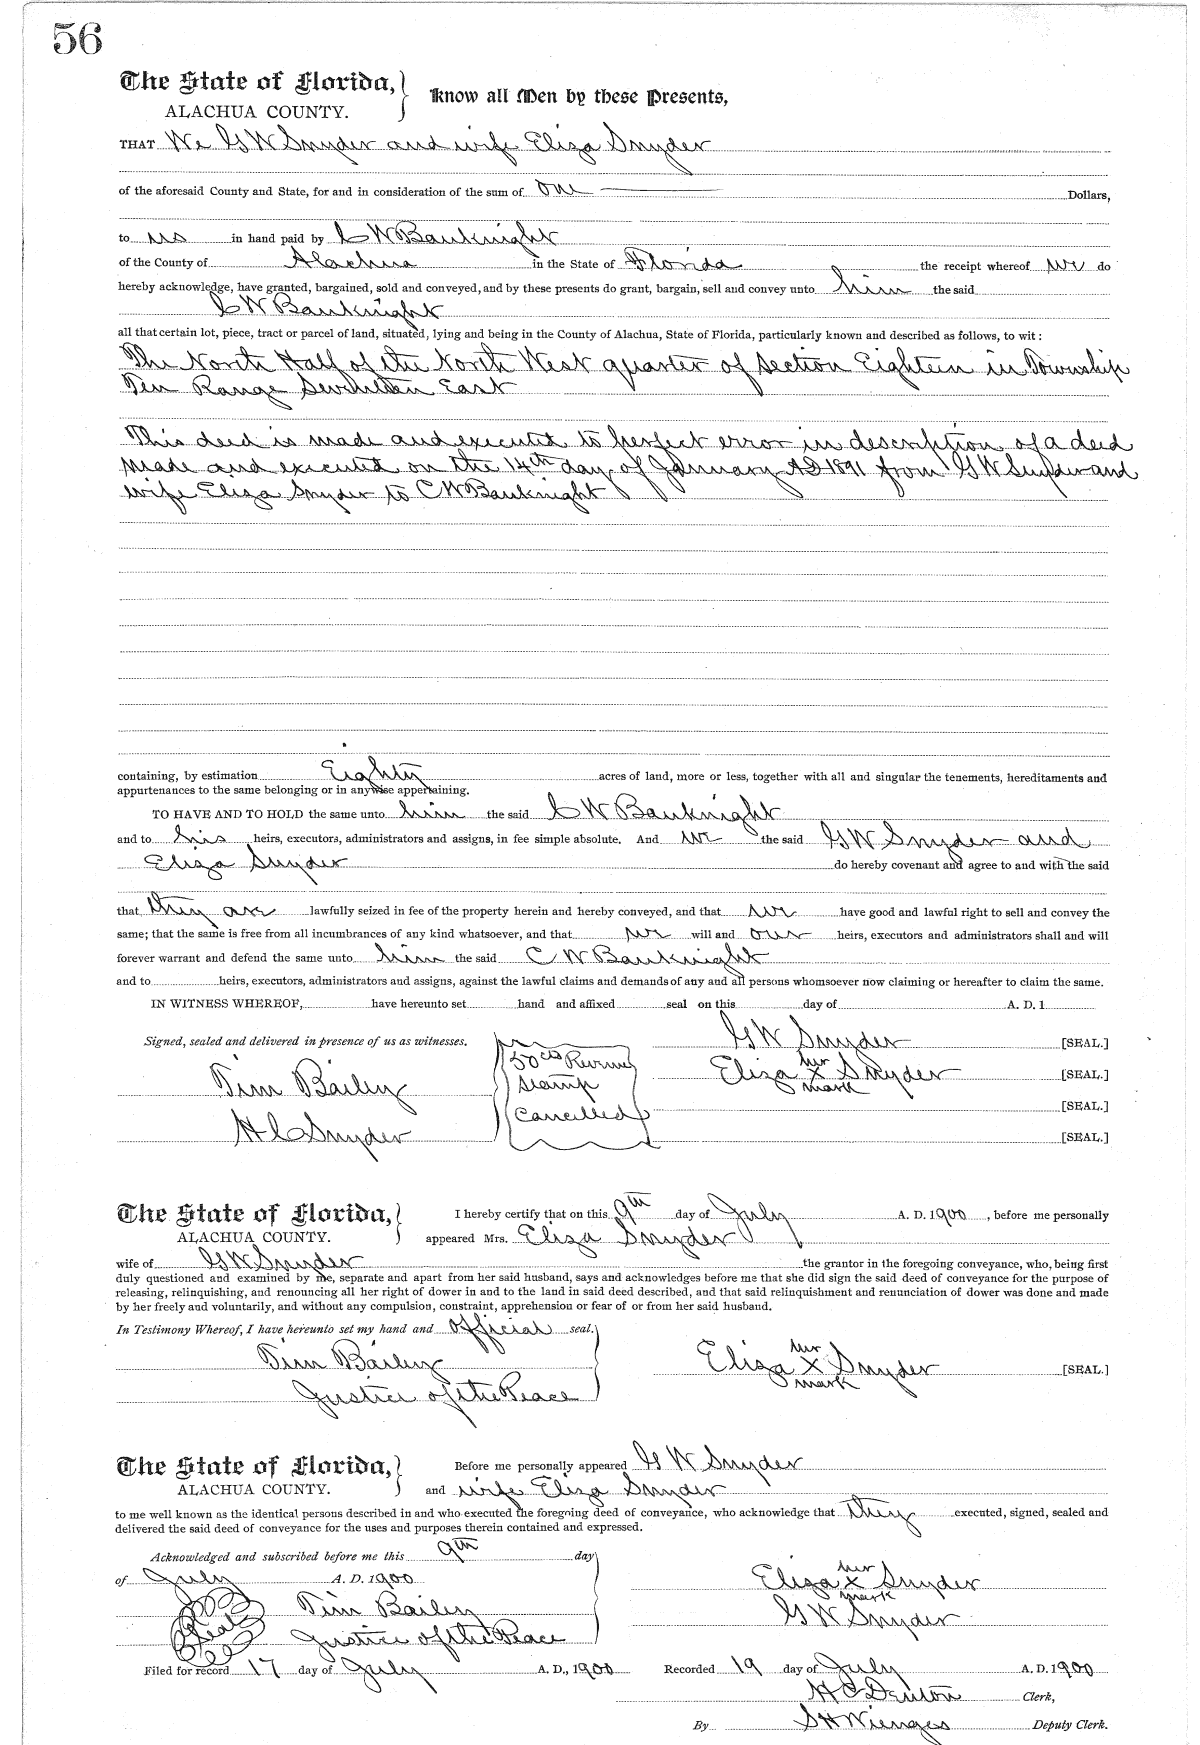 56
The State of Florida,
ALACHUA COUNTY.
Know all Men by these Presents,
THAT We G W Snyder and wife Eliza Snyder
of the aforesaid County and State, for and in consideration of the sum of one Dollars,
to us in hand paid by C W Bauknight
of the County of Alachua in the State of Florida the receipt whereof we do
hereby acknowledge, have granted, bargained, sold and conveyed, and by these presents do grant, bargain, sell and convey unto him the said
C W Bauknight
all that certain lot, piece, tract or parcel of land, situated, lying and being in the County of Alachua, State of Florida, particularly known and described as follows, to wit:
The North Half of the North West quarter of Section Eighteen in Township
Ten Range Seventeen East
This deed is made and executed to perfect error in description of a deed
made and executed on the 14th day of January AD 1891 from G W Snyder and
wife Eliza Snyder to C W Bauknight
containing, by estimation Eighty acres of land, more or less, together with all and singular the tenements, hereditaments and
appurtenances to the same belonging or in anywise appertaining.
TO HAVE AND TO HOLD the same unto him the said C W Bauknight
and to his heirs, executors, administrators and assigns, in fee simple absolute. And we the said G W Snyder and
Eliza Snyder do hereby covenant and agree to and with the said
that they are lawfully seized in fee of the property herein and hereby conveyed, and that we have good and lawful right to sell and convey the
same; that the same is free from all incumbrances of any kind whatsoever, and that we will and our heirs, executors and administrators shall and will
forever warrant and defend the same unto him the said C W Bauknight
and to heirs, executors, administrators and assigns, against the lawful claims and demands of any and all persons whomsoever now claiming or hereafter to claim the same.
IN WITNESS WHEREOF, have hereunto set hand and affixed seal on this day of A. D. 1
Signed, sealed and delivered in presence of us as witnesses.
G W Snyder [SEAL.]
50 cts Revenue
Stamp
Cancelled
Tim Bailey
her
Eliza X Snyder [SEAL.]
mark
[SEAL.]
H C Snyder
[SEAL.]
The State of Florida,
ALACHUA COUNTY.
I hereby certify that on this 9th day of July A. D. 1900, before me personally
appeared Mrs. Eliza Snyder
wife of G W Snyder the grantor in the foregoing conveyance, who, being first
duly questioned and examined by me, separate and apart from her said husband, says and acknowledges before me that she did sign the said deed of conveyance for the purpose of
releasing, relinquishing, and renouncing all her right of dower in and to the land in said deed described, and that said relinquishment and renunciation of dower was done and made
by her freely and voluntarily, and without any compulsion, constraint, apprehension or fear of or from her said husband.
In Testimony Whereof, I have hereunto set my hand and official seal.
Tim Bailey
Justice of the Peace
her
Eliza X Snyder [SEAL.]
mark
The State of Florida,
ALACHUA COUNTY.
Before me personally appeared G W Snyder
and wife Eliza Snyder
to me well known as the identical persons described in and who executed the foregoing deed of conveyance, who acknowledge that they executed, signed, sealed and
delivered the said deed of conveyance for the uses and purposes therein contained and expressed.
Acknowledged and subscribed before me this 9th day
of July A. D. 1900
Seal
Tim Bailey
Justice of the Peace
her
Eliza X Snyder
mark
G W Snyder
Filed for record 17 day of July A. D., 1900
Recorded 19 day of July A. D. 1900
H C Denton Clerk,
By S H Wienges Deputy Clerk.